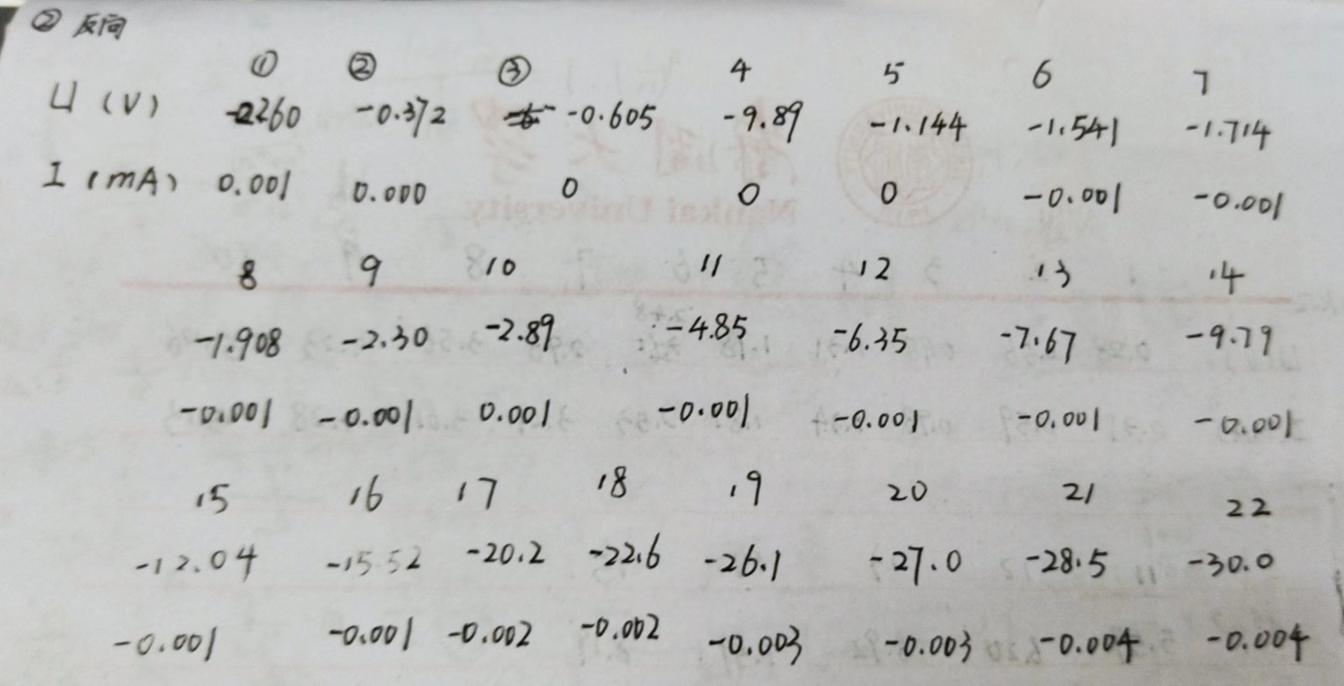 ② 反向
① ② ③ 4 5 6 7
U (V) -0.260 -0.372 -0.605 -9.89 -1.144 -1.541 -1.714
I (mA) 0.001 0.000 0 0 0 -0.001 -0.001
8 9 10 11 12 13 14
-1.908 -2.30 -2.89 -4.85 -6.35 -7.67 -9.79
-0.001 -0.001 0.001 -0.001 -0.001 -0.001 -0.001
15 16 17 18 19 20 21 22
-12.04 -15.52 -20.2 -22.6 -26.1 -27.0 -28.5 -30.0
-0.001 -0.001 -0.002 -0.002 -0.003 -0.003 -0.004 -0.004